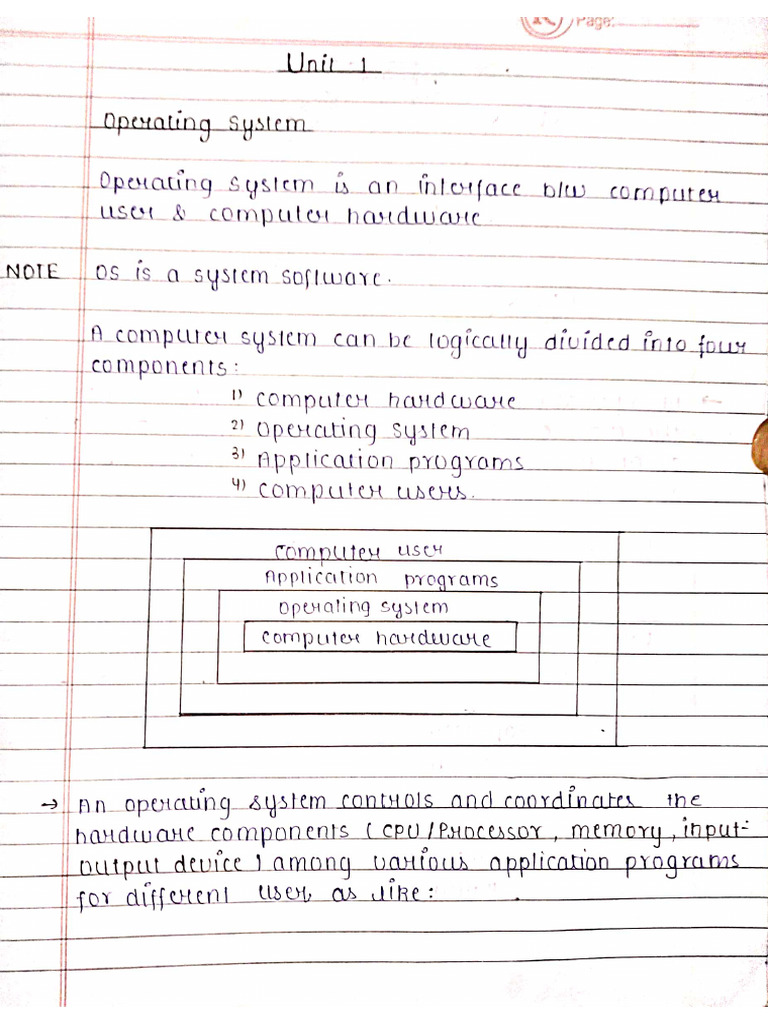 Page:
Unit 1
Operating System
Operating system is an interface b/w computer
user & computer hardware
NOTE OS is a system software.
A computer system can be logically divided into four
components:
1) computer hardware
2) operating system
3) Application programs
4) computer users.
computer user
Application programs
operating system
computer hardware
→ An operating system controls and coordinates the
hardware components (CPU/Processor, memory, input-
output device) among various application programs
for different user as like: